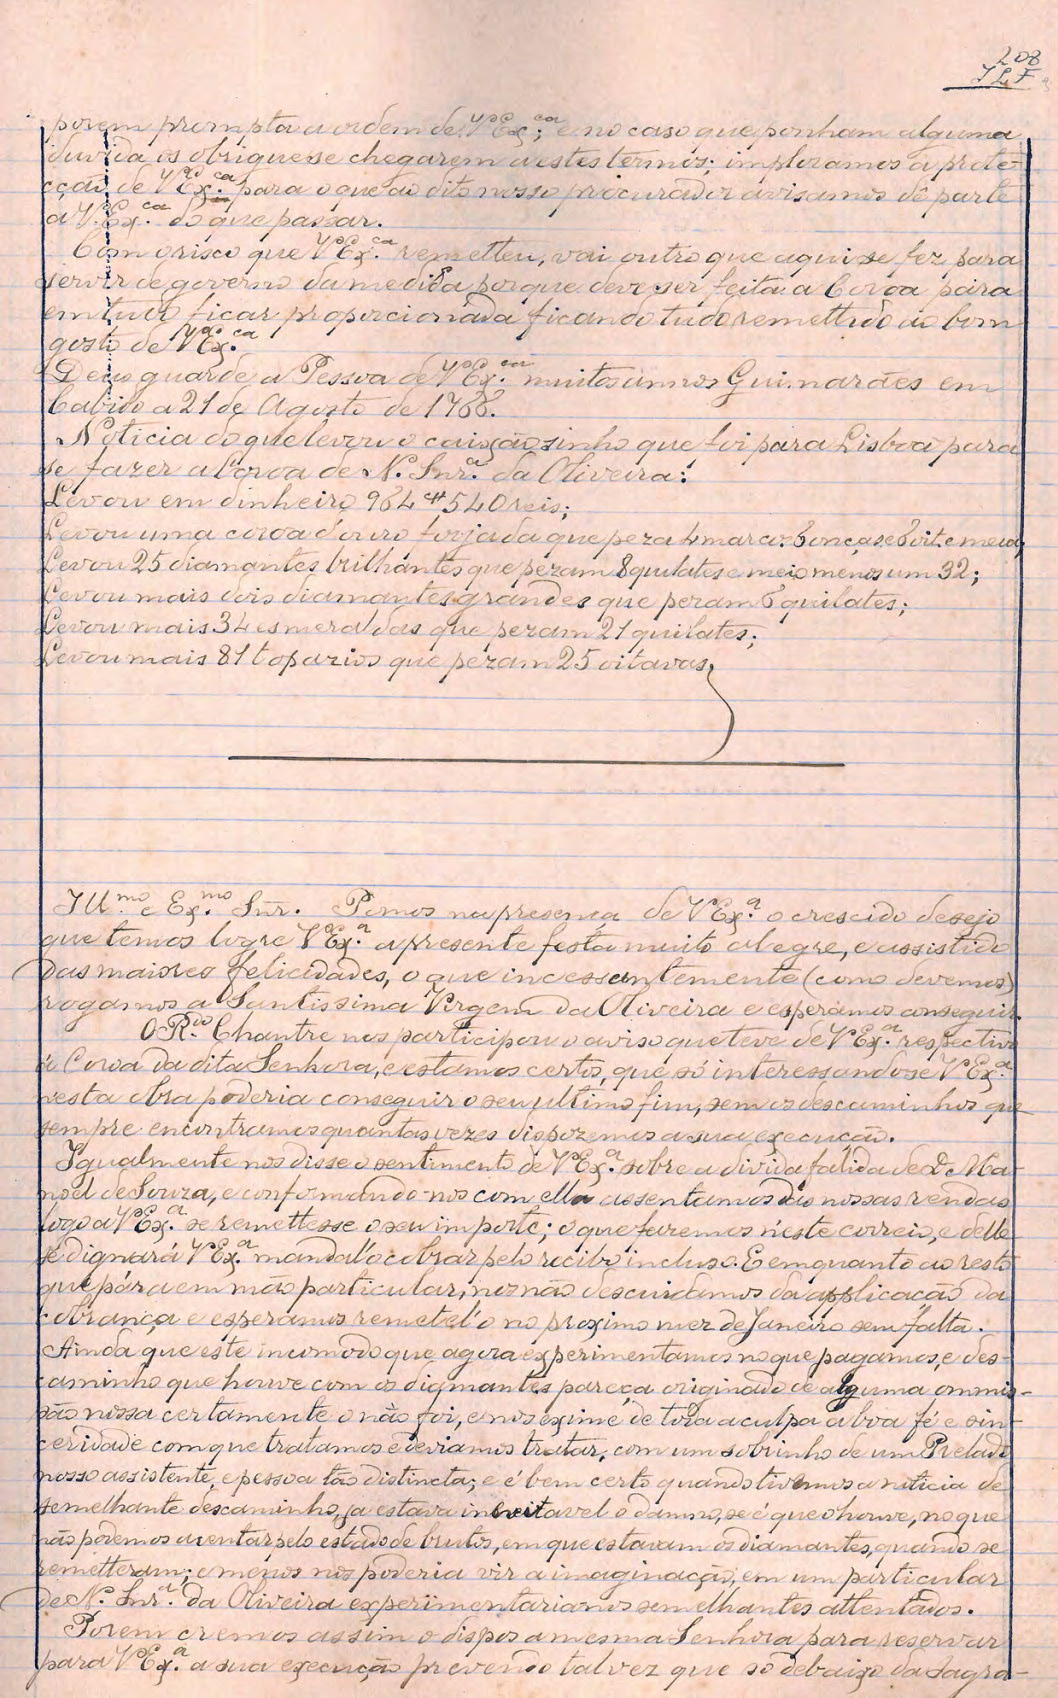 208
JLF
porem prompta a ordem de VEx.ca; e no caso que ponham alguma
duvida os obrigue se chegarem a estes termos; imploramos a prote-
cção de VEx.ca para o que ao dito nosso procurador avisamos dê parte
a VEx.ca do que passar.
Com o risco que VEx.ca remetteu, vai outro que aqui se fez para
servir de governo da medida porque deve ser feita a Coroa para
em tudo ficar proporcionada ficando tudo remettido ao bom
gosto de VEx.ca
Deus guarde a Pessoa de VEx.ca muitos annos Guimarães em
Cabido a 21 de Agosto de 1788.
Noticia do que levou o caixãosinho que foi para Lisboa para
se fazer a Coroa de N. Snr.a da Oliveira:
Levou em dinheiro 984#540 reis;
Levou uma coroa d'ouro forjada que peza 4 marcos 6 onças e 6 oit. e meia;
Levou 25 diamantes brilhantes que pezam 8 quilates e meio menos um 32;
Levou mais dois diamantes grandes que pezam 6 quilates;
Levou mais 34 esmeraldas que pezam 21 quilates;
Levou mais 81 topazios que pezam 25 oitavas,
Ill.mo e Ex.mo Snr. Pomos na presensa de VEx.a o crescido desejo
que temos logre VEx.a a presente festa muito alegre, e assistido
das maiores felicidades, o que incessantemente (como devemos)
rogamos a Santissima Virgem da Oliveira e esperamos conseguir.
O R.do Chantre nos participou o aviso que teve de VEx.a respectivo
á Coroa da dita Senhora, e estamos certos, que só interessando se VEx.a
nesta obra poderia conseguir o seu ultimo fim, sem os descaminhos que
sempre encontramos quantas vezes dispozemos a sua execução.
Igualmente nos disse o sentimento de VEx.a sobre a divida falida de D. Ma-
noel de Souza, e conformando-nos com ella assentamos das nossas rendas
logo a VEx.a se remettesse o seu importe; o que fazemos n'este correio, e delle
se dignará VEx.a mandal'o cobrar pelo recibo incluso. E emquanto ao resto
que pára em mão particular, nóz não descuidamos da applicação da
cobrança e esperamos remetel'o no proximo mez de Janeiro sem falta.
Ainda que este incomodo que agora experimentamos no que pagamos, e des-
caminho que houve com os diamantes pareça originado de alguma ommis-
são nossa certamente o não foi, e nos exime de toda a culpa a boa fé e sin-
ceridade com que tratamos e deviamos tratar, com um sobrinho de um Prelado
nosso assistente, e pessoa tão distincta; e é bem certo quando tivemos a noticia de
semelhante descaminho, ja estava inevitavel o damno, se é que o houve, no que
não podemos aventar pelo estado de brutos, em que estavam os diamantes, quando se
remetteram; e menos nos poderia vir a imaginação, em um particular
de N. Snr.a da Oliveira experimentariamos semelhantes attentados.
Porem cremos assim o dispos a mesma Senhora para reservar
para VEx.a a sua execução prevendo talvez que só debaixo da sagra-